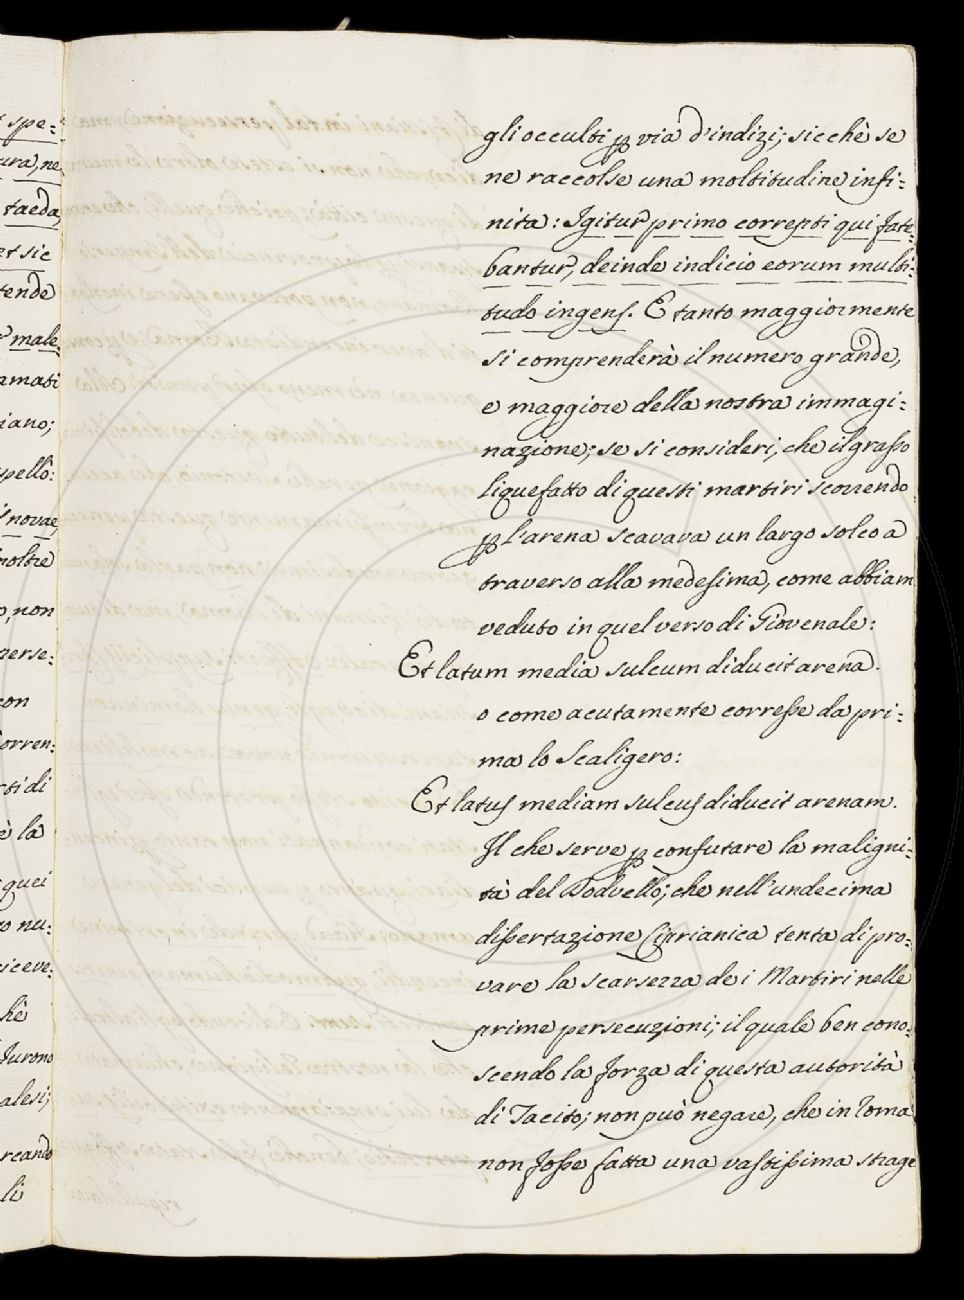 t spe=
ura, ne
taeda,
et sic
tende
male
amati
iano;
spellò:
novae,
moltre
o, non
perse=
con
orren=
rti di
è la
quei
o nu=
iceve=
hè
furono
alesi;
rcando
li
gli occulti p via d'indizi; sicchè se
ne raccolse una moltitudine infi=
nita: Igitur primo correpti qui fate=
bantur, deinde indicio eorum multi=
tudo ingens. E tanto maggiormente
si comprenderà il numero grande,
e maggiore della nostra immagi=
nazione; se si consideri, che il grasso
liquefatto di questi martiri scorrendo
p l'arena scavava un largo solco a
traverso alla medesima, come abbiam
veduto in quel verso di Giovenale:
Et latum media sulcum diducit arena.
o come acutamente corresse da pri=
ma lo Scaligero:
Et latus mediam sulcus diducit arenam.
Il che serve p confutare la maligni=
tà del Dodvello; che nell'undecima
dissertazione Ciprianica tenta di pro=
vare la scarsezza de i Martiri nelle
prime persecuzioni; il quale ben cono=
scendo la forza di questa autorità
di Tacito; non può negare, che in Roma
non fosse fatta una vastissima strage